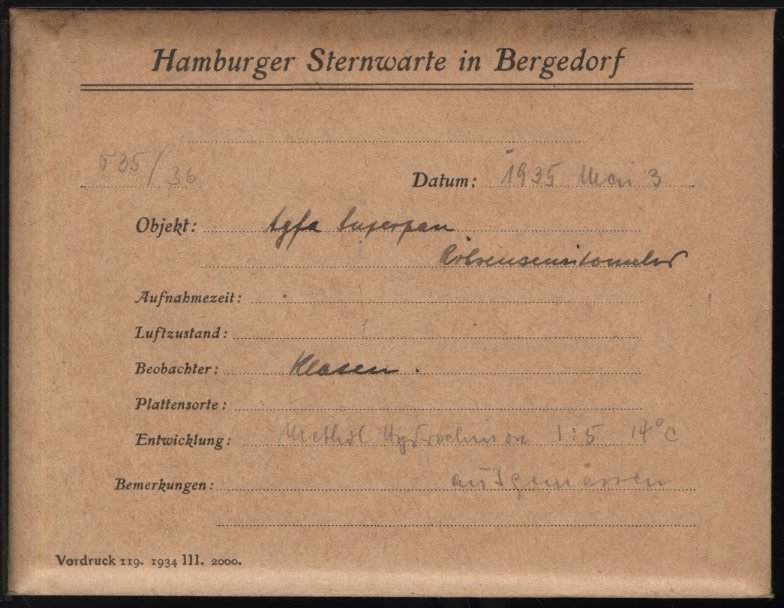 Hamburger Sternwarte in Bergedorf
535/36
Datum: 1935 Mai 3
Objekt: Agfa Superpan
Röhrensensitometer
Aufnahmezeit:
Luftzustand:
Beobachter: Klasen.
Plattensorte:
Entwicklung: Methol Hydrochinon 1:5 14°C
Bemerkungen: ausgemessen
Vordruck 119. 1934 III. 2000.